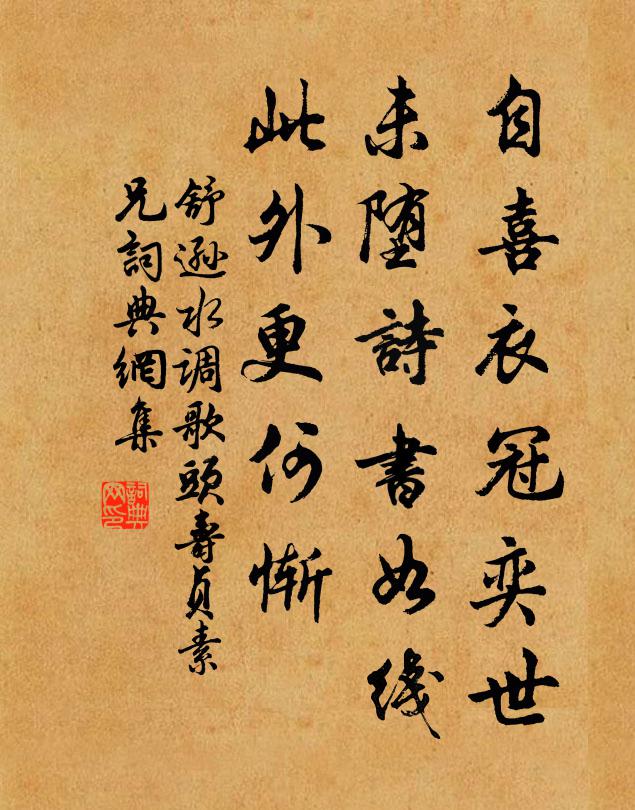 自喜衣冠奕世
未堕詩書如线
此外更何惭
舒逊水调歌頭壽貞素
兄詞典網集
詞典网印